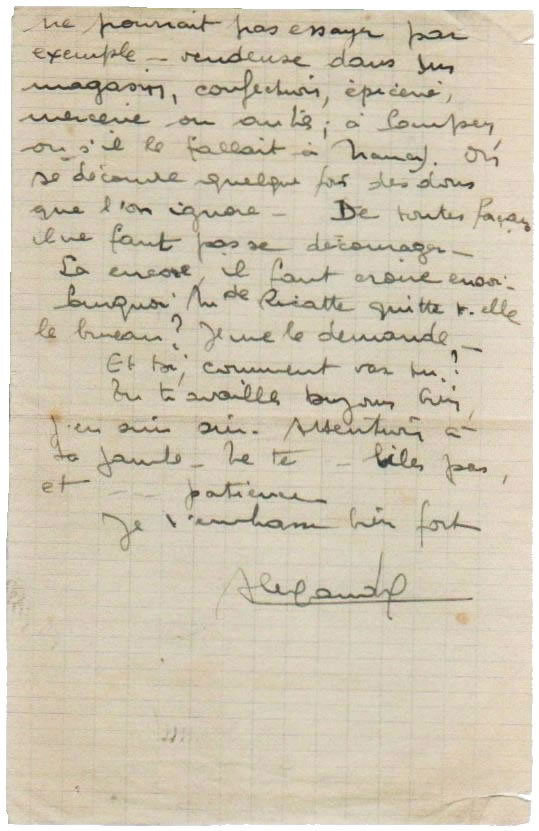 ne pourrait pas essayer par
exemple – vendeuse dans un
magasin, confection, épicerie,
mercerie ou autre ; à Pompey,
ou s'il le fallait à Nancy. On
se découvre quelque fois des dons
que l'on ignore – De toutes façons
il ne faut pas se décourager –
Là encore, il faut croire encore
Pourquoi Mde Ricatte quitte t-elle
le bureau ? Je me le demande –
Et toi, comment vas tu ?
Tu travailles toujours bien,
j'en suis sûr. Attention à
ta santé – Ne te – biles pas,
et – – patience
Je t'embrasse bien fort
Alexandre